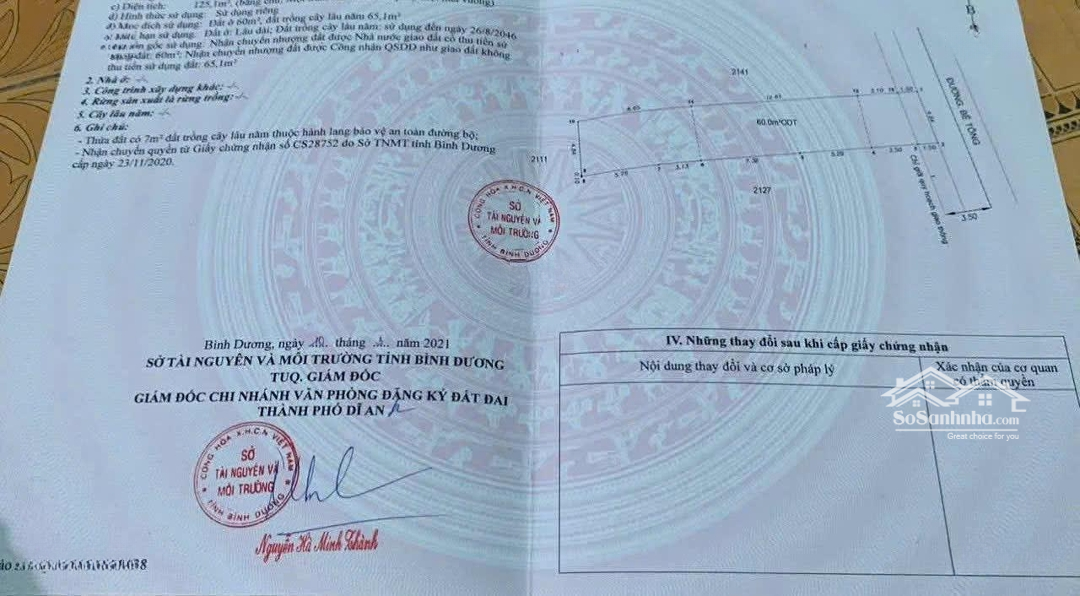 c) Diện tích: 125,1m², (bằng chữ:
d) Hình thức sử dụng: Sử dụng riêng
đ) Mục đích sử dụng: Đất ở 60m², đất trồng cây lâu năm 65,1m²
hạn sử dụng: Đất ở: Lâu dài; Đất trồng cây lâu năm: sử dụng đến ngày 26/8/2046
gốc sử dụng: Nhận chuyển nhượng đất được Nhà nước giao đất có thu tiền sử
đất: 60m²; Nhận chuyển nhượng đất được Công nhận QSDĐ như giao đất không
thu tiền sử dụng đất: 65,1m²
2. Nhà ở:
3. Công trình xây dựng khác:
4. Rừng sản xuất là rừng trồng:
5. Cây lâu năm:
6. Ghi chú:
- Thửa đất có 7m² đất trồng cây lâu năm thuộc hành lang bảo vệ an toàn đường bộ;
- Nhận chuyển quyền từ Giấy chứng nhận số CS28752 do Sở TNMT tỉnh Bình Dương
cấp ngày 23/11/2020.
CỘNG HÒA X.H.C.N VIỆT NAM
SỞ
TÀI NGUYÊN VÀ
MÔI TRƯỜNG
TỈNH BÌNH DƯƠNG
B
2141
60.0m²ODT
2111
2127
3.10
1.50
5.20
2.50
1.50
3.50
ĐƯỜNG BÊ TÔNG
Chỉ giới quy hoạch giao thông
Bình Dương, ngày tháng năm 2021
SỞ TÀI NGUYÊN VÀ MÔI TRƯỜNG TỈNH BÌNH DƯƠNG
TUQ. GIÁM ĐỐC
GIÁM ĐỐC CHI NHÁNH VĂN PHÒNG ĐĂNG KÝ ĐẤT ĐAI
THÀNH PHỐ DĨ AN
CỘNG HÒA X.H.C.N VIỆT NAM
SỞ
TÀI NGUYÊN VÀ
MÔI TRƯỜNG
TỈNH BÌNH DƯƠNG
Nguyễn Hà Minh Thành
IV. Những thay đổi sau khi cấp giấy chứng nhận
Nội dung thay đổi và cơ sở pháp lý
Xác nhận của cơ quan
có thẩm quyền
SoSanhnha.com
Great choice for you